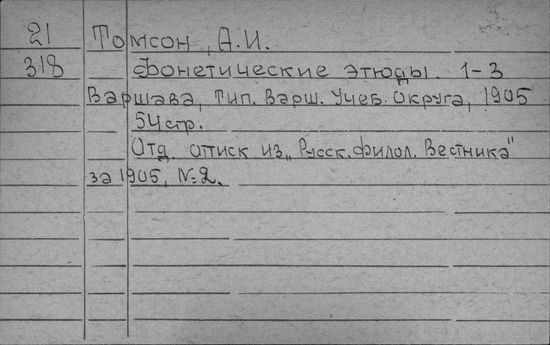 21 Томсон, А.И.
318 Фонетические этюды. 1-3
Варшава, Тип. Варш. Учеб. Округа, 1905
54 стр.
Отд. оттиск из „Русск. филол. Вестника"
за 1905, №2.